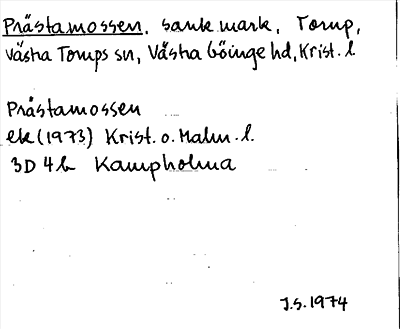 Prästamossen, sank mark, Torup,
Västra Torups sn, Västra Göinge hd, Krist. l.
Prästamossen
ek (1973) Krist. o. Malm. l.
3D 4b Kampholma
J.S. 1974